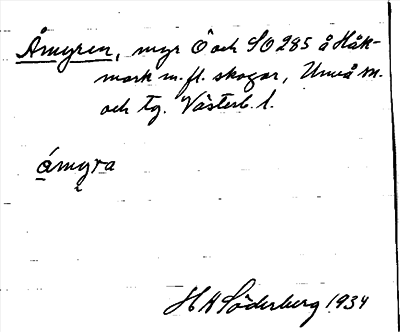 Åmyren, myr Ö och SO 285 å Håk-
mark m. fl. skogar, Umeå sn.
och tg. Västerb. l.
åmyra
H A Söderberg 1934